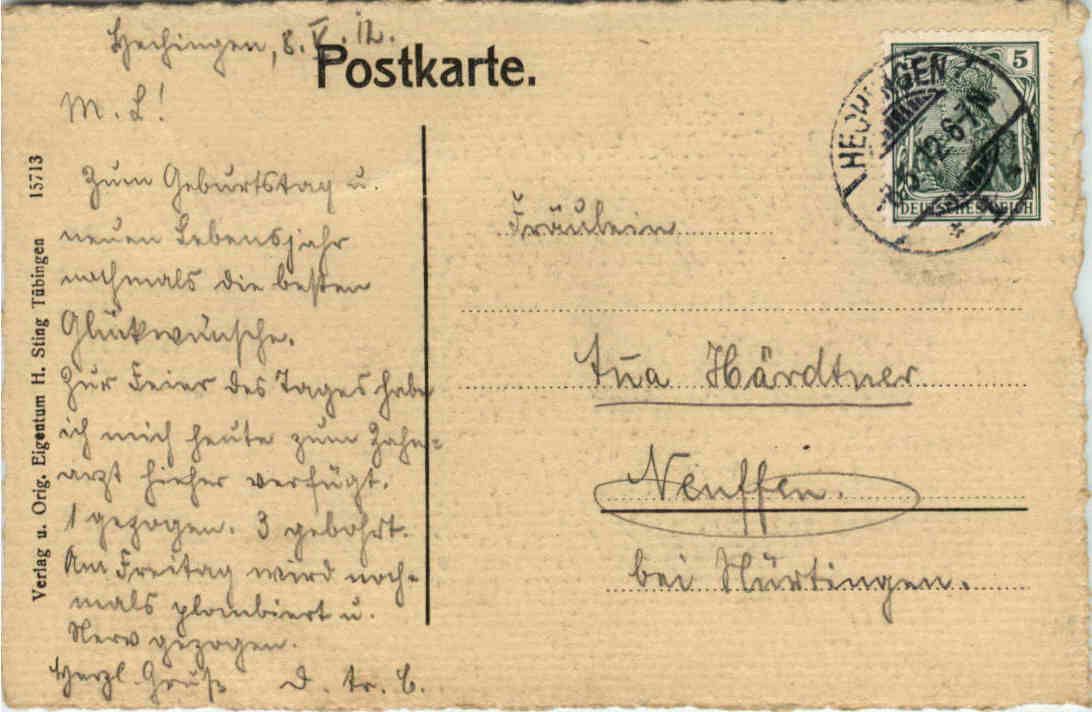 Hechingen, 8. V. 12.
Postkarte.
M. L!
Zum Geburtstag u.
neuen Lebensjahr
nochmals die besten
Glückwünsche.
Zur Feier des Tages habe
ich mich heute zum Zahn-
arzt hieher verfügt.
1 gezogen. 3 gebohrt.
Am Freitag wird noch-
mals plombiert u.
Nerv gezogen.
Herzl. Gruß D. tr. E.
Verlag u. Orig. Eigentum H. Sting Tübingen 15713
5
DEUTSCHES REICH
HECHINGEN
Fräulein
Härdtner
Neuffen.
bei Nürtingen.